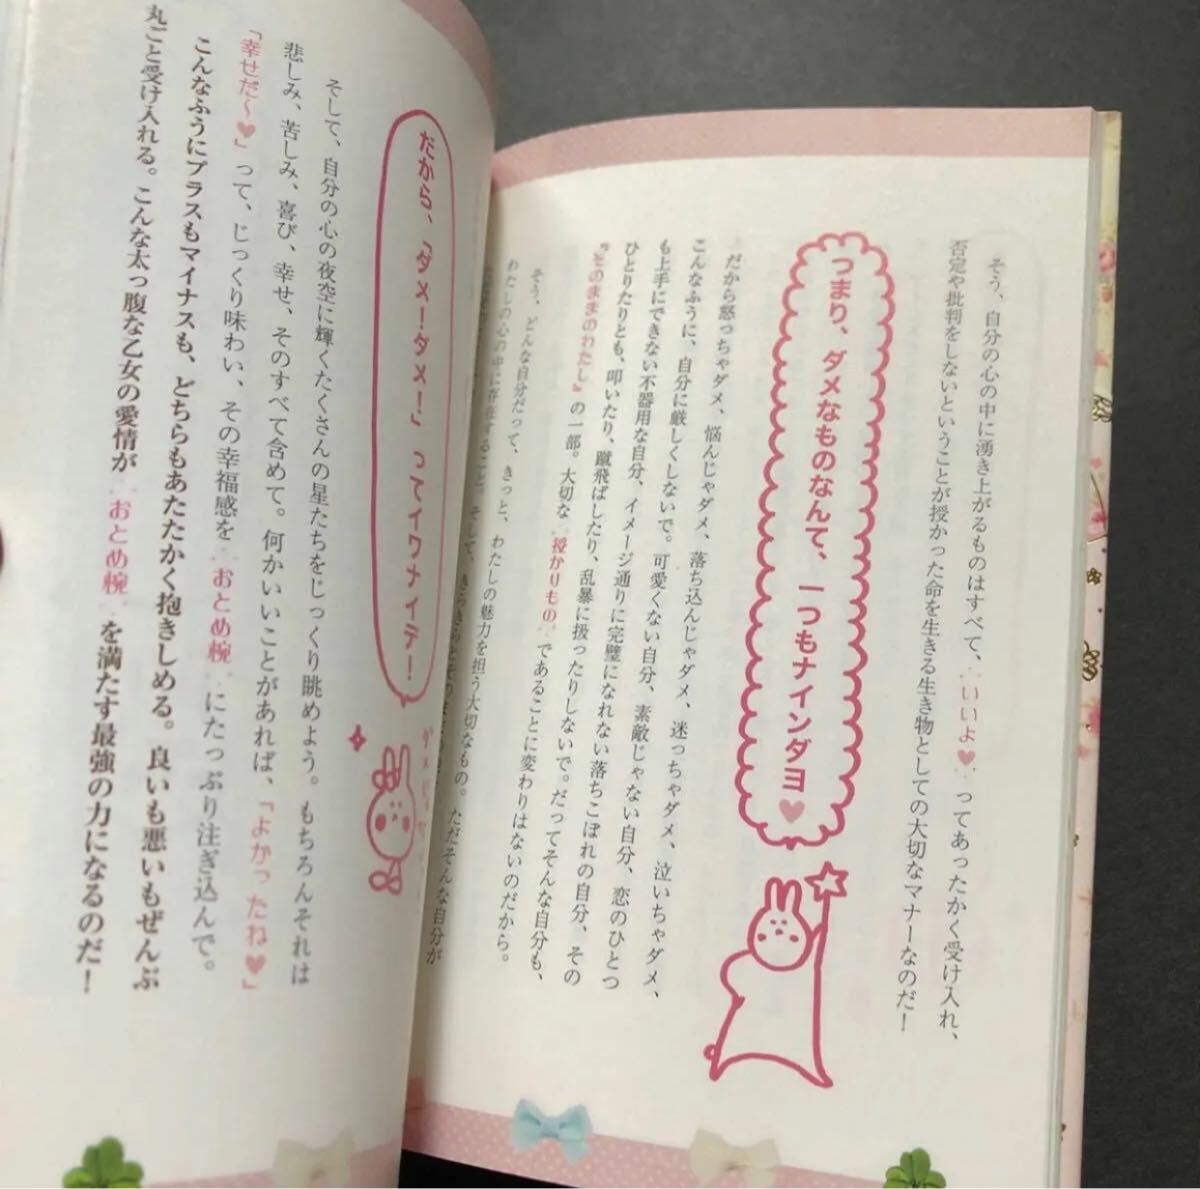 そう、自分の心の中に湧き上がるものはすべて、“いいよ♥”ってあったかく受け入れ、
否定や批判をしないということが授かった命を生きる生き物としての大切なマナーなのだ！
つまり、ダメなものなんて、一つもナインダヨ♥
だから怒っちゃダメ、悩んじゃダメ、落ち込んじゃダメ、迷っちゃダメ、泣いちゃダメ、
こんなふうに、自分に厳しくしないで。可愛くない自分、素敵じゃない自分、恋のひとつ
も上手にできない不器用な自分、イメージ通りに完璧になれない落ちこぼれの自分、その
ひとりたりとも、叩いたり、蹴飛ばしたり、乱暴に扱ったりしないで。だってそんな自分も、
『そのままのわたし』の一部。大切な“授かりもの”であることに変わりはないのだから。
そう、どんな自分だって、きっと、わたしの魅力を担う大切なもの。ただそんな自分が
わたしの心の中に存在すること。そして、きらきらとその
だから、「ダメ！ダメ！」ってイワナイデ！
そして、自分の心の夜空に輝くたくさんの星たちをじっくり眺めよう。もちろんそれは
悲しみ、苦しみ、喜び、幸せ、そのすべて含めて。何かいいことがあれば、「よかったね♥」
「幸せだ〜♥」って、じっくり味わい、その幸福感を“おとめ椀”にたっぷり注ぎ込んで。
こんなふうにプラスもマイナスも、どちらもあたたかく抱きしめる。良いも悪いもぜんぶ
丸ごと受け入れる。こんな太っ腹な乙女の愛情が“おとめ椀”を満たす最強の力になるのだ！